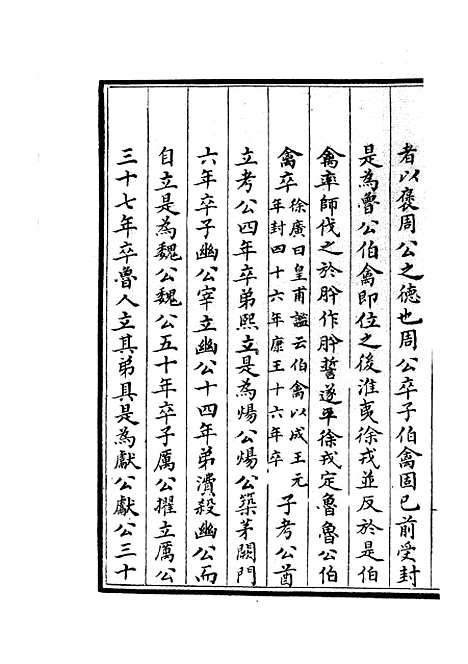 者以褒周公之徳也周公卒子伯禽固已前受封
是為魯公伯禽即位之後淮夷徐戎並反於是伯
禽率師伐之於肸作肸誓遂平徐戎定魯魯公伯
禽卒徐廣曰皇甫謐云伯禽以成王元年封四十六年康王十六年卒子考公酋
立考公四年卒弟熙立是為煬公煬公築茅闕門
六年卒子幽公宰立幽公十四年弟潰殺幽公而
自立是為魏公魏公五十年卒子厲公擢立厲公
三十七年卒魯人立其弟具是為獻公獻公三十